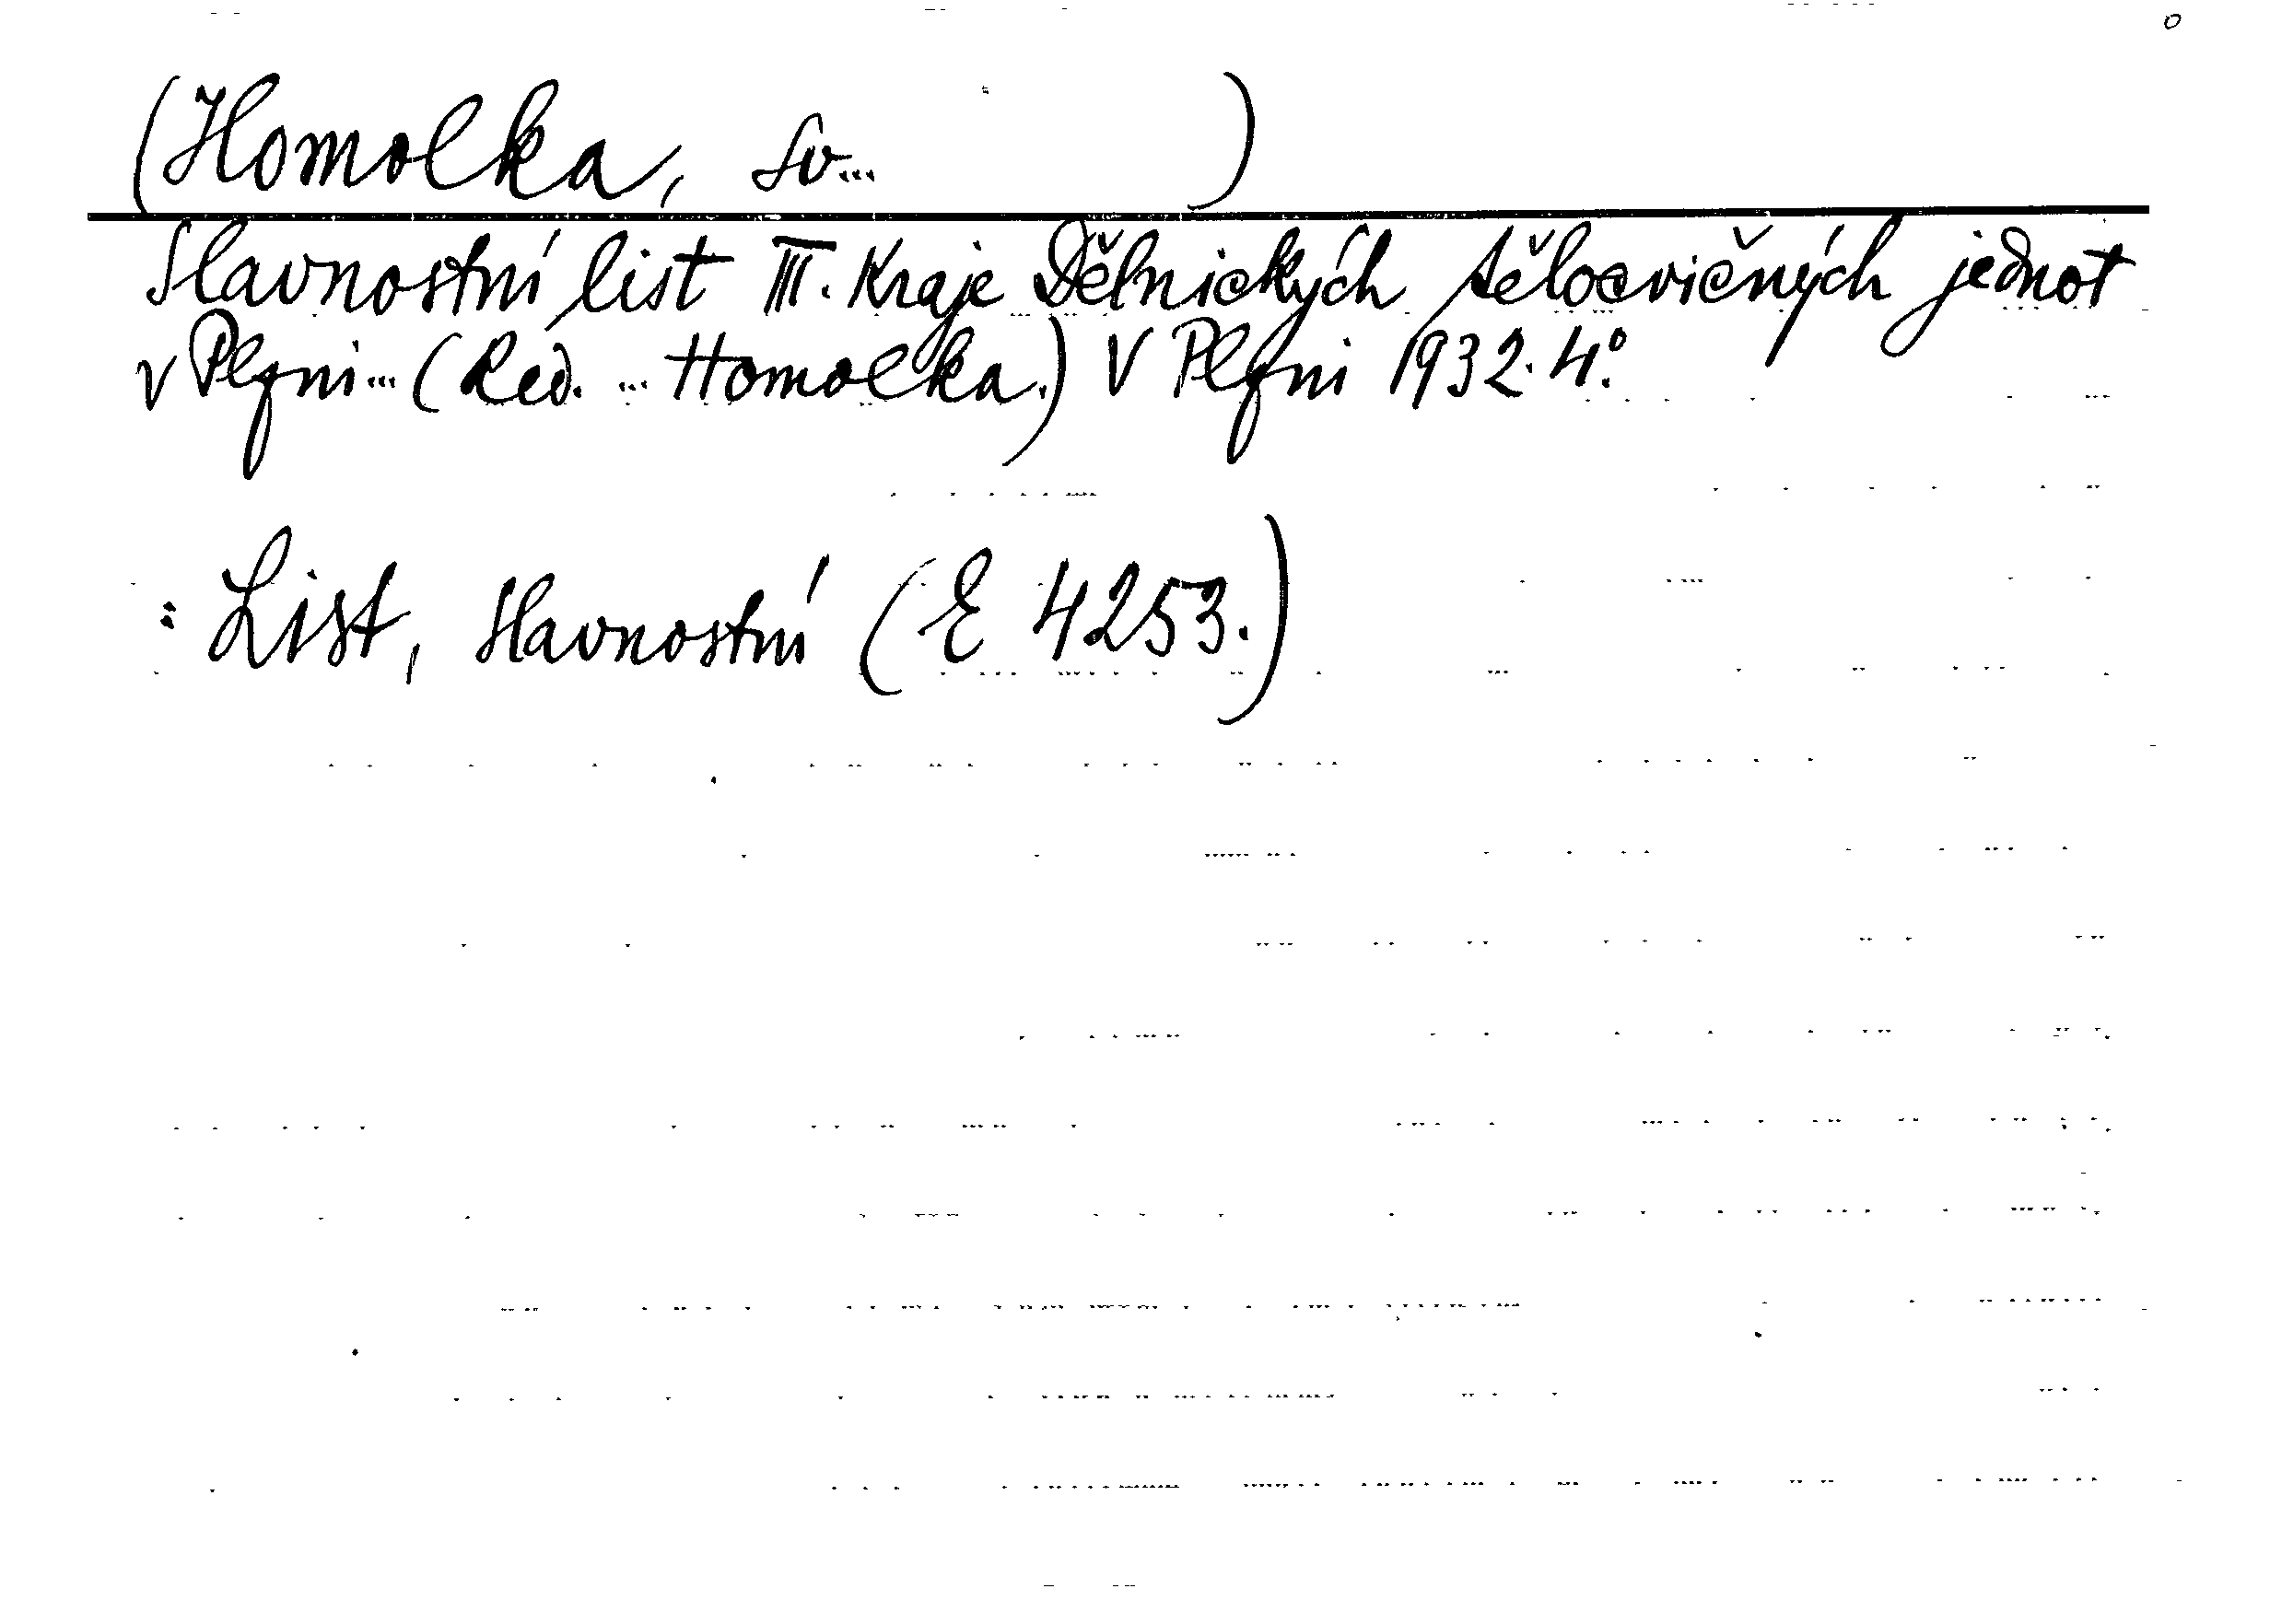 (Homolka, Sv... )
Slavnostní list III. Kraje Dělnických tělocvičných jednot
v Plzni... (Red. ... Homolka.) V Plzni 1932. 4°.
: List, slavnostní (E 4253.)